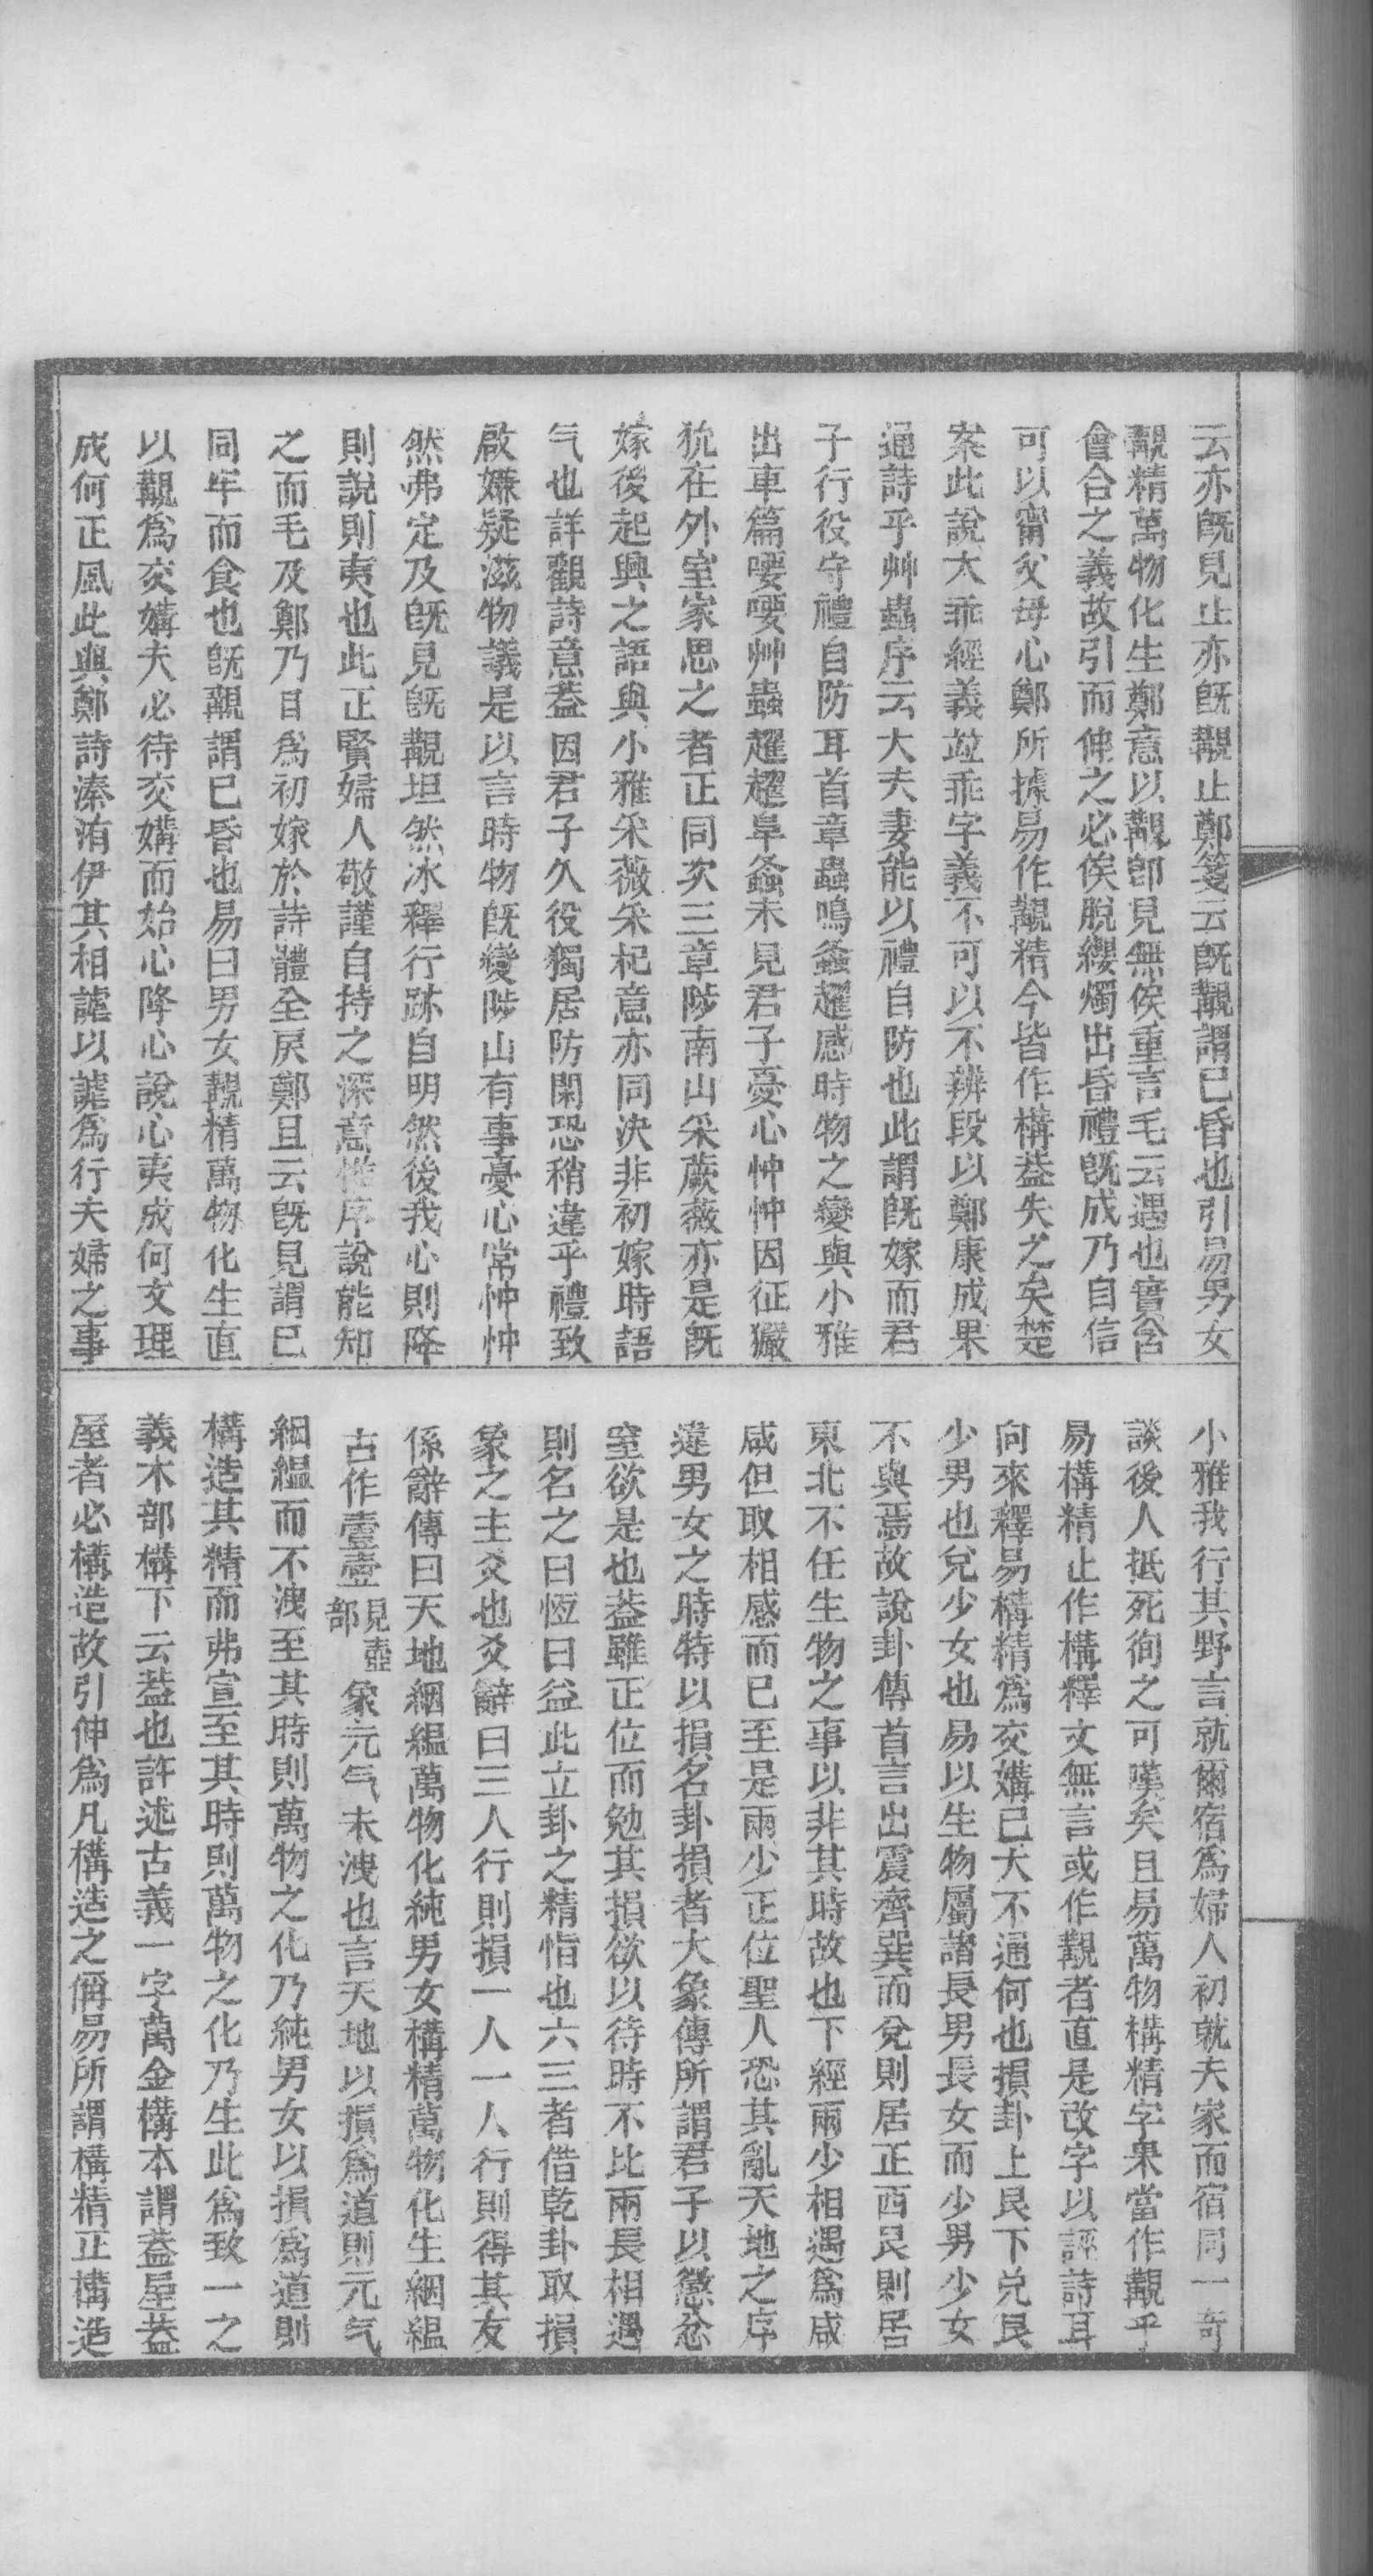 云亦旣見止亦旣覯止鄭箋云旣覯謂已昏也引易男女
覯精萬物化生鄭意以覯卽見無俟重言毛云遇也實含
會合之義故引而伸之必俟脫纓燭出昏禮旣成乃自信
可以甯父母心鄭所據易作覯精今皆作構葢失之矣楚
案此說大乖經義竝乖字義不可以不辨段以鄭康成果
通詩乎艸蟲序云大夫妻能以禮自防也此謂旣嫁而君
子行役守禮自防耳首章蟲鳴螽趯感時物之變與小雅
出車篇喓喓艸蟲趯趯阜螽未見君子憂心忡忡因征玁
狁在外室家思之者正同次三章陟南山采蕨薇亦是旣
嫁後起興之語與小雅采薇采杞意亦同決非初嫁時語
气也詳觀詩意葢因君子久役獨居防閑恐稍違乎禮致
啟嫌疑滋物議是以言時物旣變陟山有事憂心常忡忡
然弗定及旣見旣覯坦然冰釋行跡自明然後我心則降
則說則夷也此正賢婦人敬謹自持之深意惟序說能知
之而毛及鄭乃目爲初嫁於詩體全戾鄭且云旣見謂已
同牢而食也旣覯謂已昏也易曰男女覯精萬物化生直
以覯爲交媾夫必待交媾而始心降心說心夷成何文理
成何正風此與鄭詩溱洧伊其相謔以謔爲行夫婦之事
小雅我行其野言就爾宿爲婦人初就夫家而宿同一奇
談後人抵死徇之可嘆矣且易萬物構精字果當作覯乎
易構精止作構釋文無言或作覯者直是改字以誣詩耳
向來釋易構精爲交媾已大不通何也損卦上艮下兌艮
少男也兌少女也易以生物屬諸長男長女而少男少女
不與焉故說卦傳首言出震齊巽而兌則居正西艮則居
東北不任生物之事以非其時故也下經兩少相遇爲咸
咸但取相感而已至是兩少正位聖人恐其亂天地之序
違男女之時特以損名卦損者大象傳所謂君子以懲忿
窒欲是也葢雖正位而勉其損欲以待時不比兩長相遇
則名之曰恆曰益此立卦之精恉也六三者借乾卦取損
象之主爻也爻辭曰三人行則損一人一人行則得其友
係辭傳曰天地絪縕萬物化純男女構精萬物化生絪縕
古作壹壹見壺部象元气未洩也言天地以損爲道則元气
絪縕而不洩至其時則萬物之化乃純男女以損爲道則
構造其精而弗宣至其時則萬物之化乃生此爲致一之
義木部構下云葢也許述古義一字萬金構本謂葢屋葢
屋者必構造故引伸爲凡構造之偁易所謂構精正構造